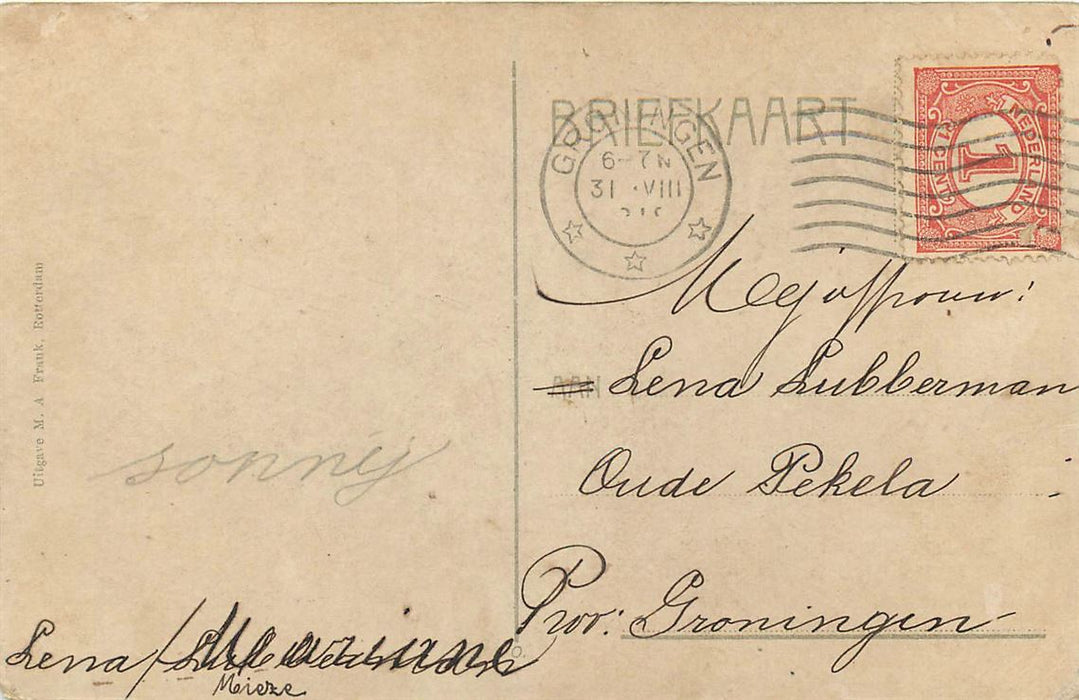 BRIEFKAART
GRONINGEN
6-7N
31 VIII
NEDERLAND
1
1 CENT
Uitgave M. A Frank, Rotterdam
Mejuffrouw:
AAN
Lena Lubberman
Oude Pekela
Prov: Groningen
sonnij
Lena
Mieze